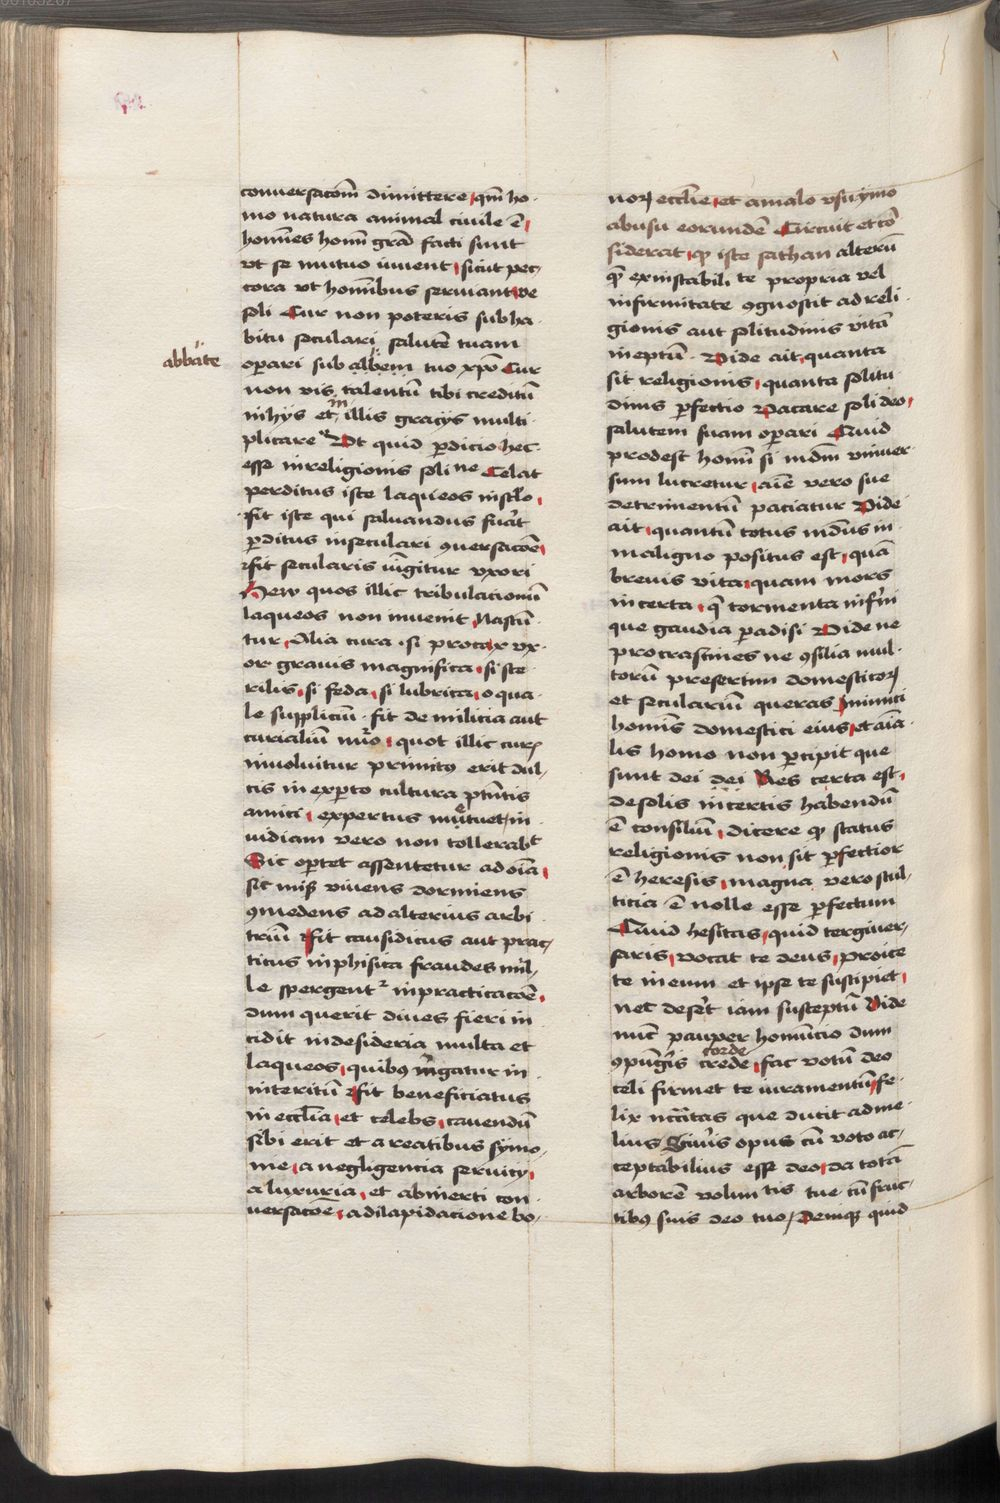 conuersacom̄ dimittere qm̄ ho-
mo natura animal ciuile ē
homīes homī grā facti sunt
vt se mutuo iuuent sicut pec-
cora vt hominibus seruiant ve
soli Cur non poteris sub ha-
bitu seculari salutē tuam
abbate
operari sub abbem tuo xpō Cur
non vis talentū tibi creditū
in hys et in illis gracijs multi-
plicare Vt quid perdicio hec
esse in religionis soli ne Celat
perditus iste laqueos in sclo
fit iste qui saluandus fuit
ꝑditus in seculari ꝯuersacōe
fit secularis iūgitur vxori
Hew quos illic tribulacionū
laqueos non inuenit Nascū-
tur Alia cura si procax vx-
or grauis magnifica si ste-
rilis si feda si lubrica o qua-
le supplicium fit de milicia aut
curialiū nūo quot illic curꝭ
inuoluitur primitus erit dul-
cis in experto cultura ptn̄tis
amici expertus metuet in-
uidiam vero non tollerabit
Sic oportet assentetur ad oīa
sit miser viuens dormiens
ꝯmedens ad alterius arbi-
trium fit causidicus aut prac-
ticus in phisica fraudes mil-
le spergentur in practicacōe
dum querit diues fieri in-
cidit in desideria multa et
laqueos quibꝰ mergatur in
interitū fit beneficiatus
in ecclia et celebs cauendū
sibi erit et a reatibus symo-
nie a negligencia seruicij
a luxuria et ab inerti con-
uersacōe a dilapidacione bo-
noꝝ ecclie et a malo vsu ymo
abusu eorundē Circuit et cō-
siderat ꝙ iste sathan alterū
quē ex instabilitate propria vel
infirmitate ꝯgnoscit ad reli-
gionis aut solitudinis vitā
ineptū Vide ait quanta
sit religionis quanta solitu-
dinis ꝑfectio Vacare soli deo
salutem suam oꝑari Quid
prodest homī si mdm̄ vniuer-
sum lucretur aīe vero sue
detrimentū paciatur Vide
ait quantū totus mdūs in
maligno positus est quā
breuis vita quam mors
incerta qͣ tormenta infīni
que gaudia ꝑadisi Vide ne
procrastines ne ꝯsilia mul-
torū presertim domesticoꝝ
et seculariū queras inimici
homīs domestici eius et aīa-
lis homo non ꝑcipit que
sunt dei dei Res certa est
de solis incertis habendū
ē consiliū dicere ꝙ status
religionis non sit ꝑfectior
ē heresis magna vero stul-
ticia ē nolle esse ꝑfectum
Quid hesitas quid tergiuer-
saris vocat te deus proice
te in eum et ipse te suscipiet
nec deserit iam susceptū Vide
nunc pauper homuncio dum
corde
ꝯpūgīs crede fac votū deo
celi firmet te iuramentū fe-
lix necitas que ducit ad me-
lius Siuis opus cū voto ac-
ceptabilius esse deo da totā
arborē volun tis tue cū fruc-
tibꝰ suis deo tuo Demqꝫ quid